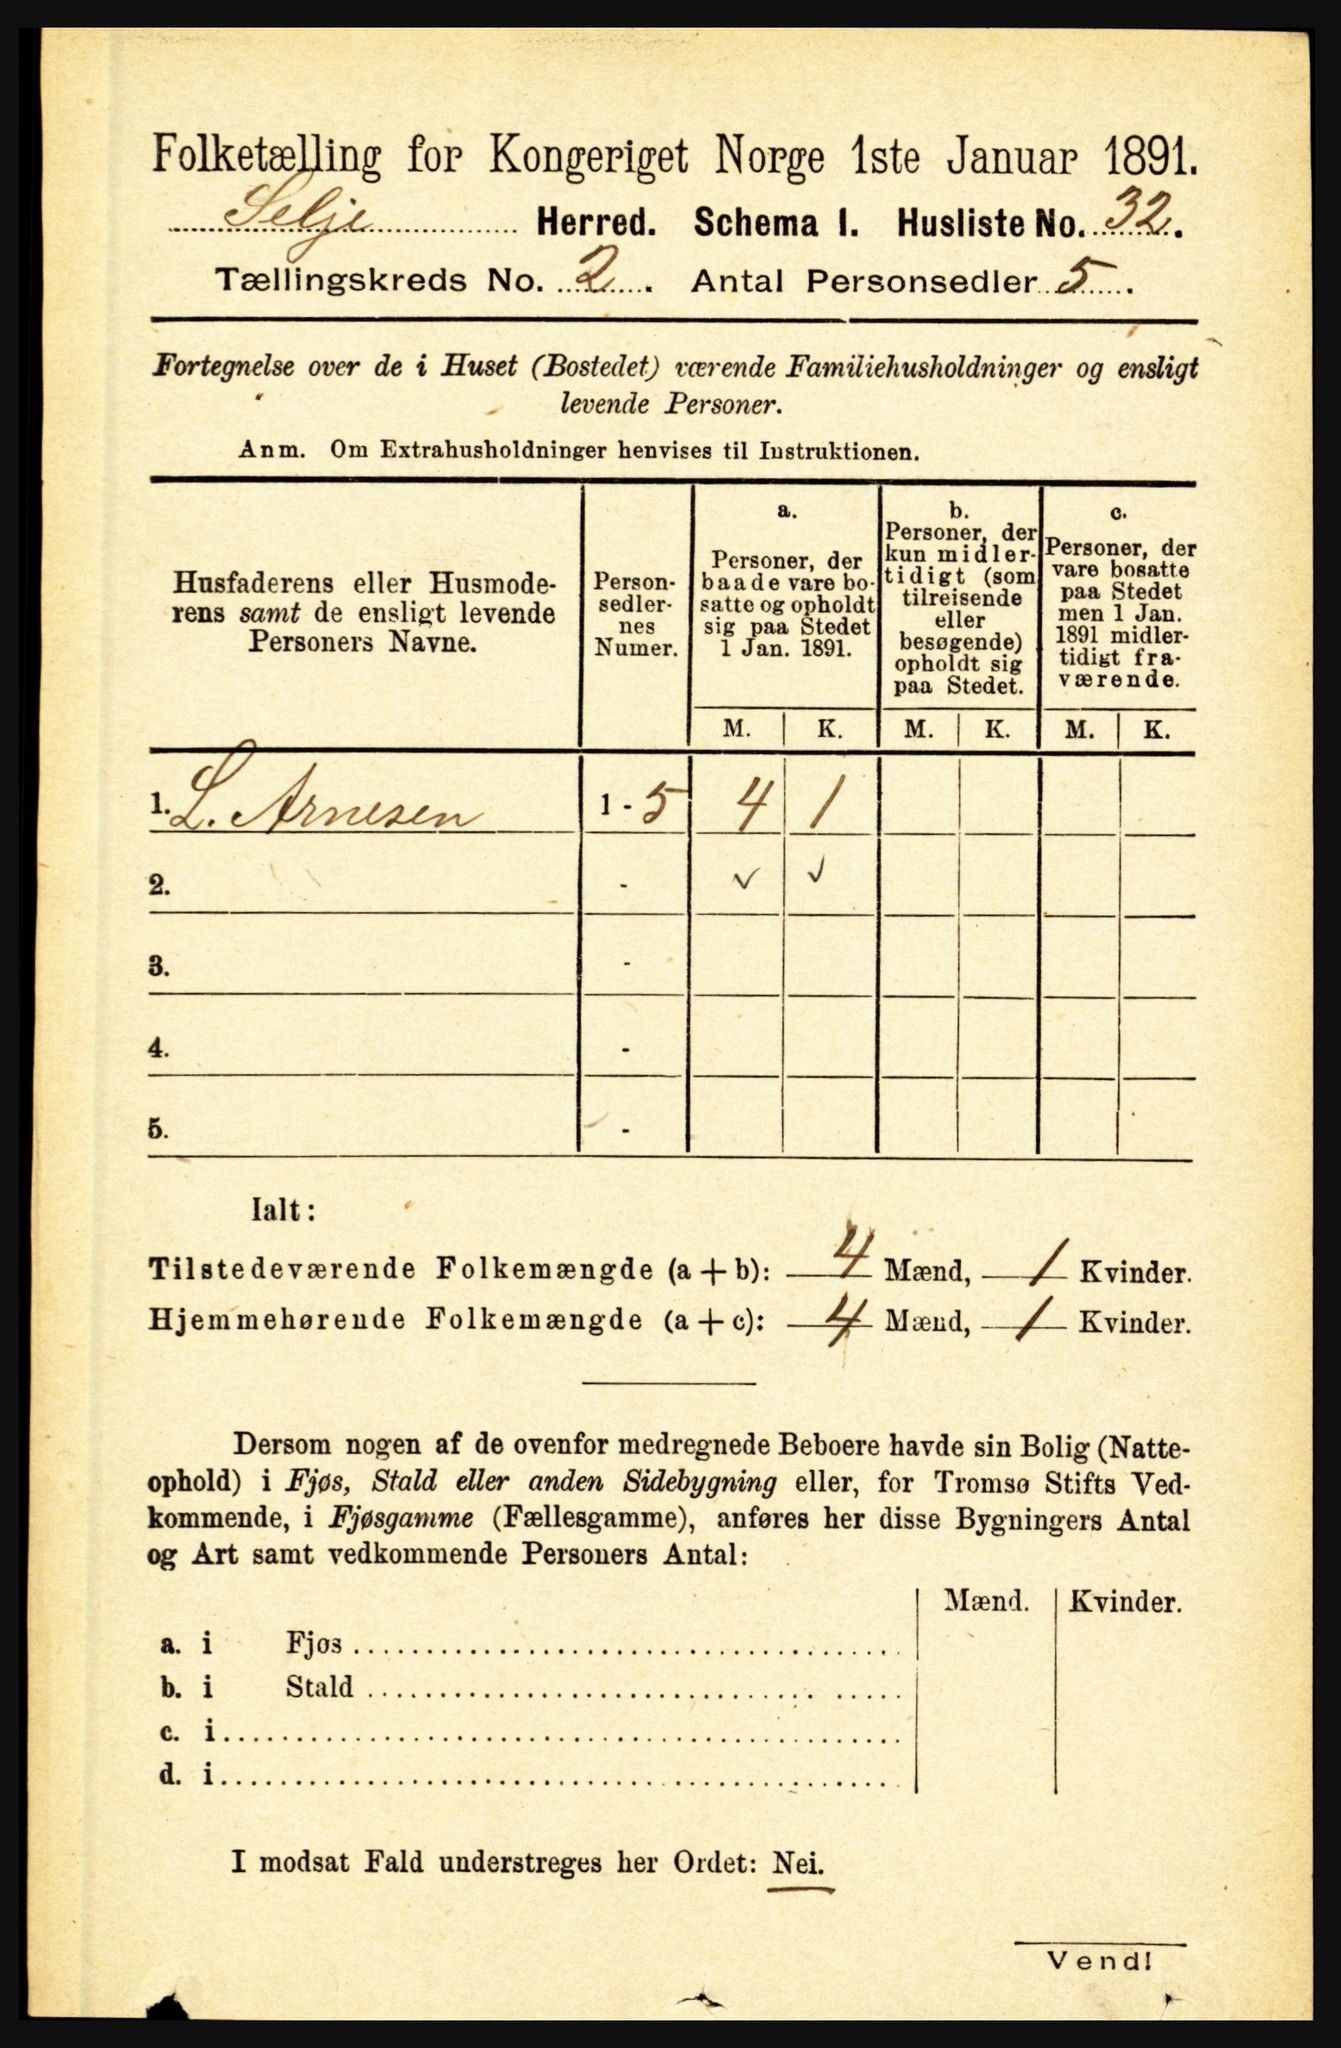 Folketælling for Kongeriget Norge 1ste Januar 1891.
Selje Herred. Schema I. Husliste No. 32.
Tællingskreds No. 2. Antal Personsedler 5.
Fortegnelse over de i Huset (Bostedet) værende Familiehusholdninger og ensligt
levende Personer.
Anm. Om Extrahusholdninger henvises til Instruktionen.
Husfaderens eller Husmode-
rens samt de ensligt levende
Personers Navne.
Person-
sedler-
nes
Numer.
a.
Personer, der
baade vare bo-
satte og opholdt
sig paa Stedet
1 Jan. 1891.
b.
Personer, der
kun midler-
tidigt (som
tilreisende
eller
besøgende)
opholdt sig
paa Stedet.
c.
Personer, der
vare bosatte
paa Stedet
men 1 Jan.
1891 midler-
tidigt fra-
værende.
M. K. M. K. M. K.
1. L. Arnesen 1 - 5 4 1
2. - ✓ ✓
3. -
4. -
5. -
Ialt:
Tilstedeværende Folkemængde (a + b): 4 Mænd, 1 Kvinder.
Hjemmehørende Folkemængde (a + c): 4 Mænd, 1 Kvinder.
Dersom nogen af de ovenfor medregnede Beboere havde sin Bolig (Natte-
ophold) i Fjøs, Stald eller anden Sidebygning eller, for Tromsø Stifts Ved-
kommende, i Fjøsgamme (Fællesgamme), anføres her disse Bygningers Antal
og Art samt vedkommende Personers Antal:
Mænd. Kvinder.
a. i Fjøs
b. i Stald
c. i
d. i
I modsat Fald understreges her Ordet: Nei.
Vend!